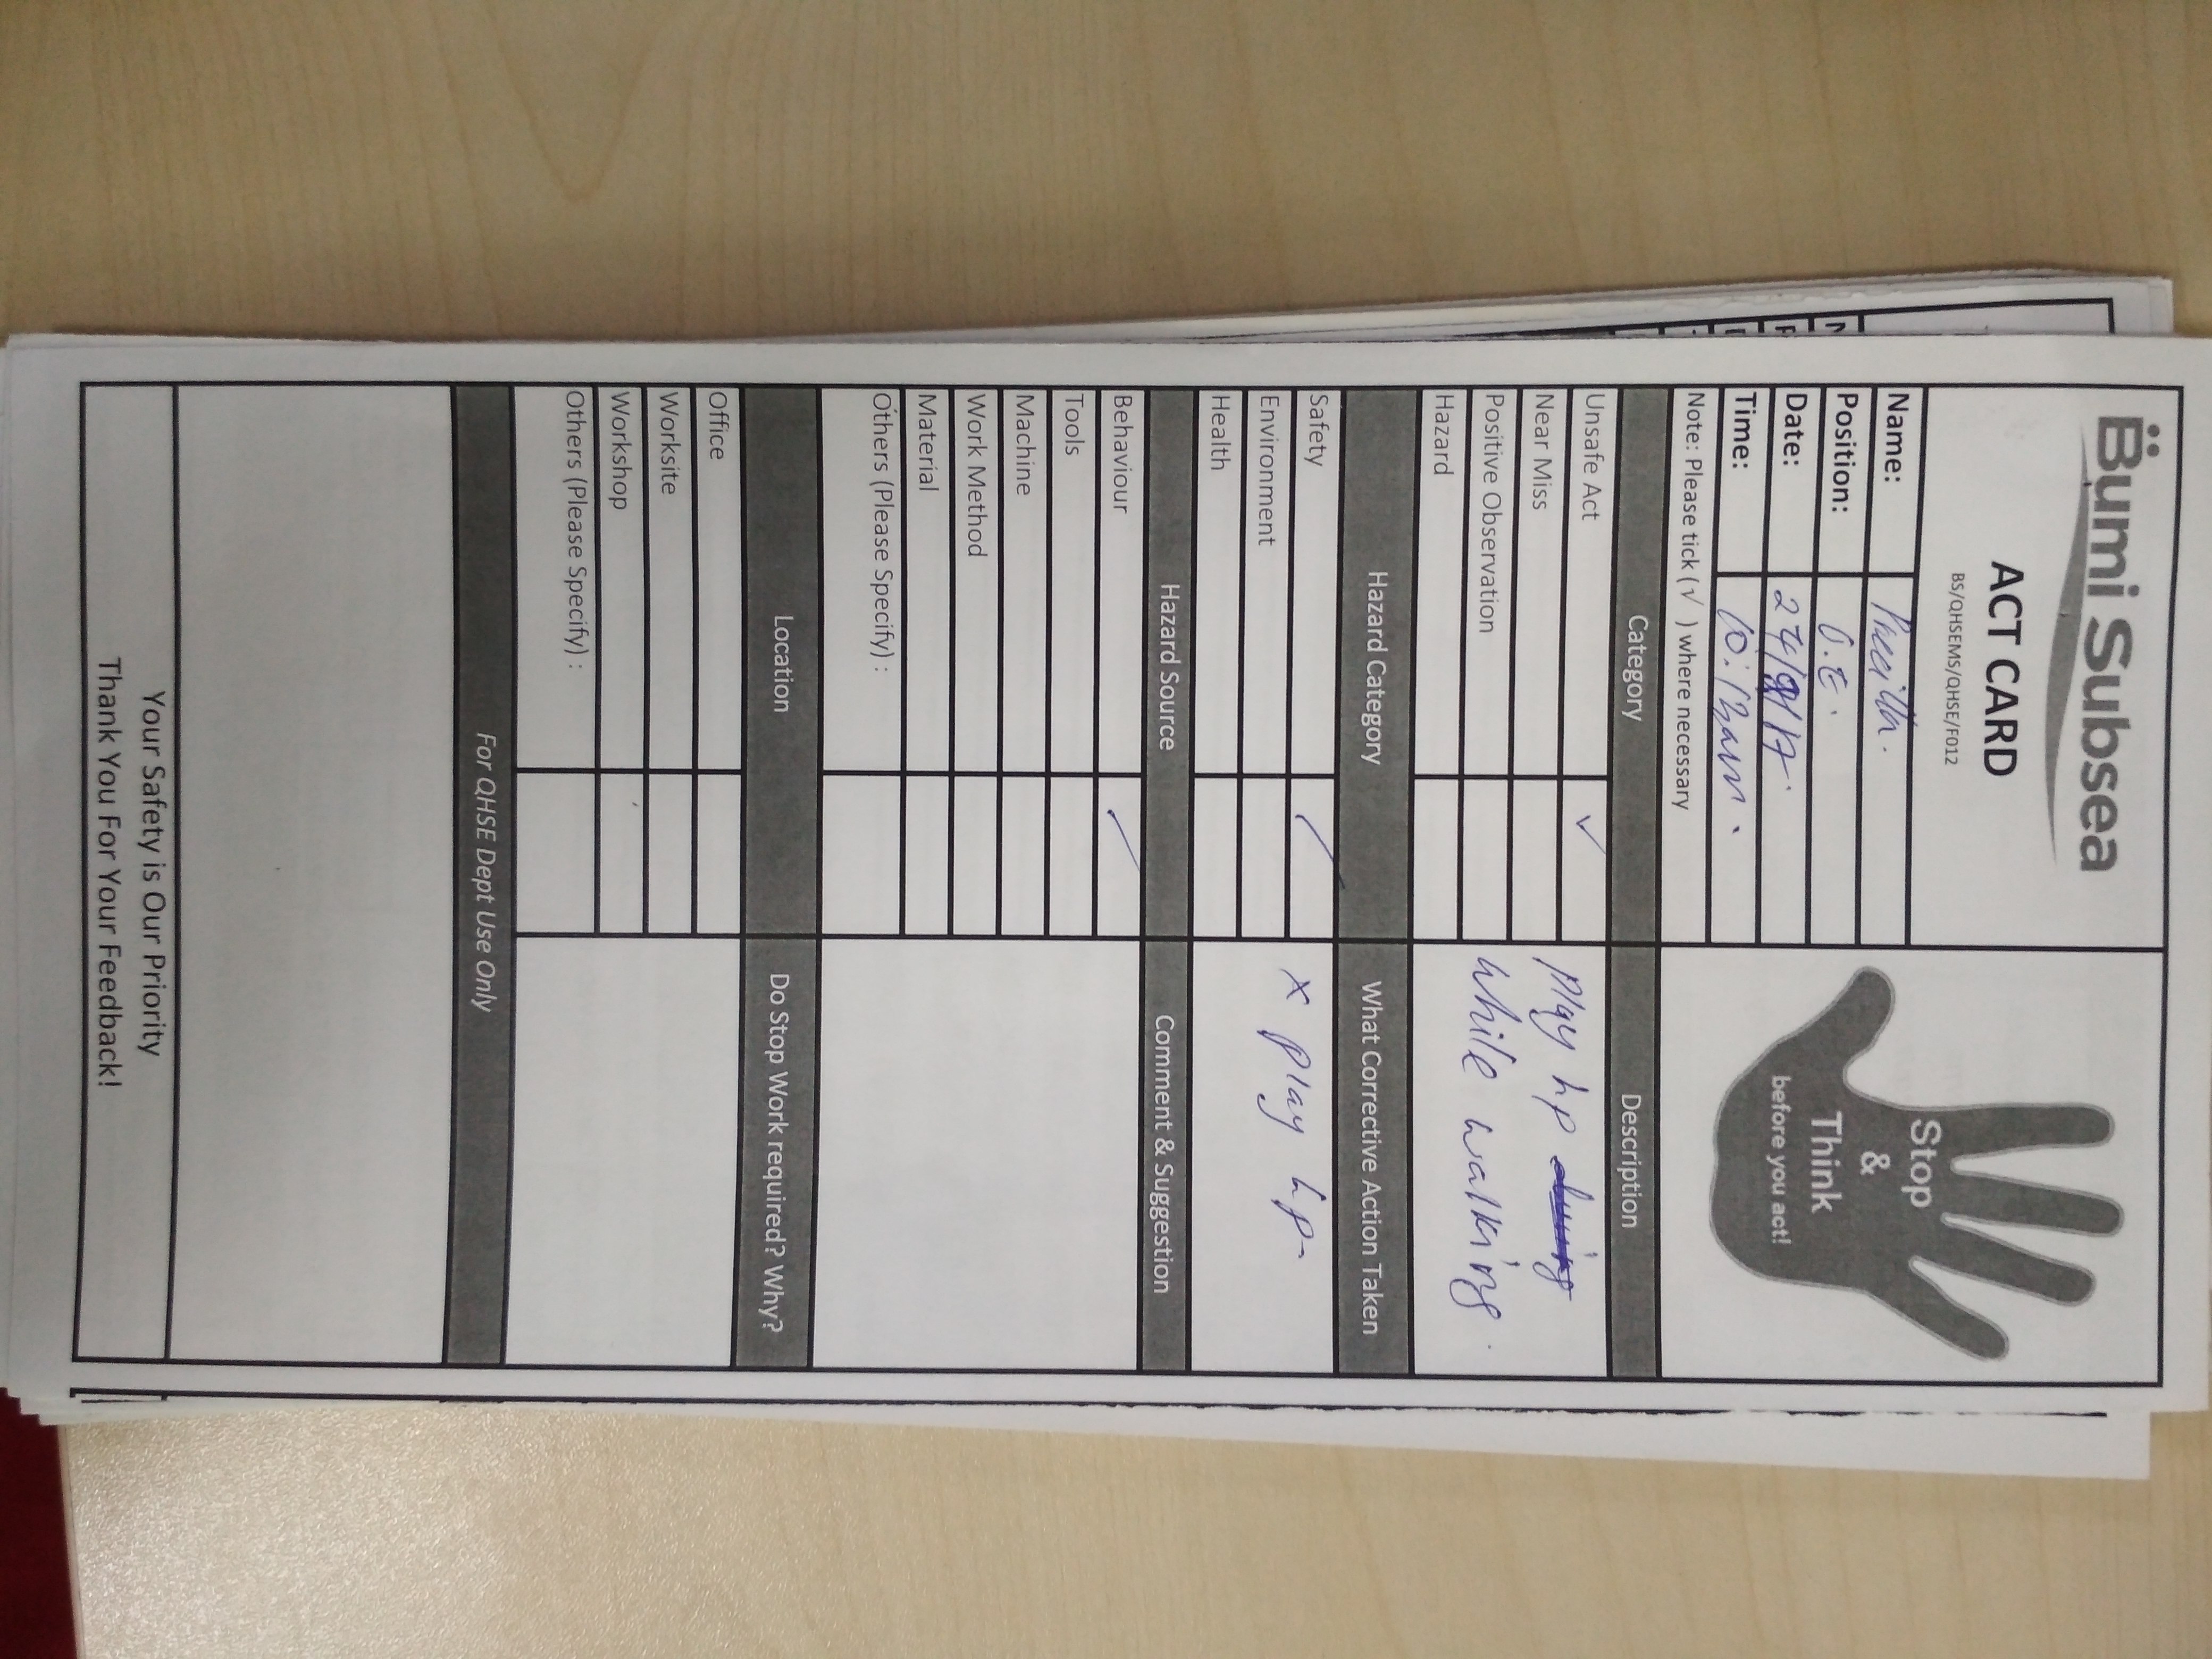 Bumi Subsea
ACT CARD
BS/QHSEMS/QHSE/F012
Stop
&
Think
before you act!
Name:
Position: O.E.
Date:
Time: 10:12am.
Note: Please tick (√ ) where necessary
Category Description
Unsafe Act ✓
Near Miss
Positive Observation
Hazard
Play hp
while walking.
Hazard Category What Corrective Action Taken
Safety ✓
Environment
Health
x play hp
Hazard Source Comment & Suggestion
Behaviour ✓
Tools
Machine
Work Method
Material
Others (Please Specify) :
Location Do Stop Work required? Why?
Office
Worksite
Workshop
Others (Please Specify) :
For QHSE Dept Use Only
Your Safety is Our Priority
Thank You For Your Feedback!